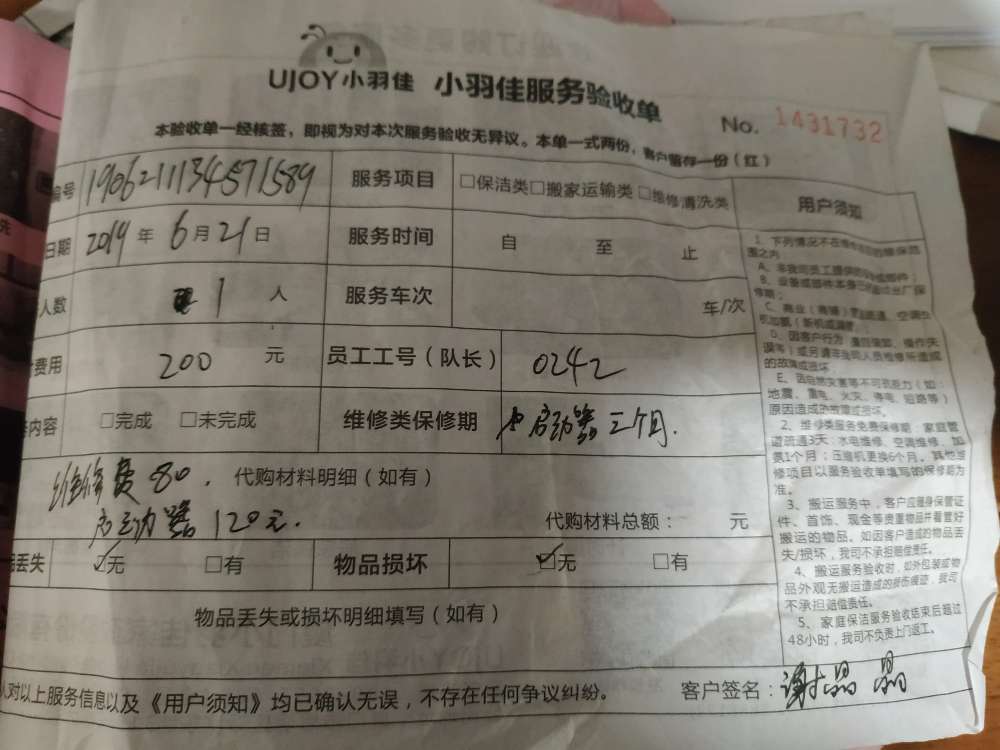 UJOY小羽佳 小羽佳服务验收单
No. 1431732
本验收单一经核签，即视为对本次服务验收无异议。本单一式两份，客户留存一份（红）
编号 1906211134571589 服务项目 □保洁类□搬家运输类□维修清洗类
日期 2019年6月21日 服务时间 自 至 止
人数 1 人 服务车次 车/次
费用 200 元 员工工号（队长） 0242
内容 □完成 □未完成 维修类保修期 启动器三个月.
维修费80. 代购材料明细（如有）
启动器120元. 代购材料总额： 元
丢失 ☑无 □有 物品损坏 ☑无 □有
物品丢失或损坏明细填写（如有）
人对以上服务信息以及《用户须知》均已确认无误，不存在任何争议纠纷。 客户签名：谢晶晶
用户须知
1、下列情况不在
围之内
A、非我司员工提供的
B、设备或部件本身已
修期；
C、商业（商铺）
D、因客户行为
误等）或另请非我司人员维修所造成
的故障或损坏
E、因自然灾害等不可抗力（如：
地震、雷电、火灾、停电、短路等）
原因造成的故障或损坏。
2、维修类服务免费保修期：家庭管
道疏通3天；水电维修、空调维修、加
氨1个月；压缩机更换6个月。其他维
修项目以服务验收单填写的保修期为
准。
3、搬运服务中，客户应随身保管证
件、首饰、现金等贵重物品并看管好
搬运的物品。如因客户造成的物品丢
失/损坏，我司不承担赔偿责任。
4、搬运服务验收时，如外包装或物
品外观无搬运造成的损伤痕迹，我司
不承担赔偿责任。
5、家庭保洁服务验收结束后超过
48小时，我司不负责上门返工。